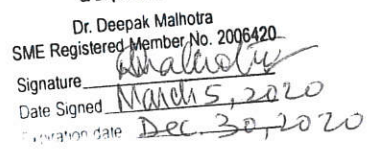 Dr. Deepak Malhotra
SME Registered Member No. 2006420
Signature Malhotra
Date Signed March 5, 2020
date Dec. 30, 2020